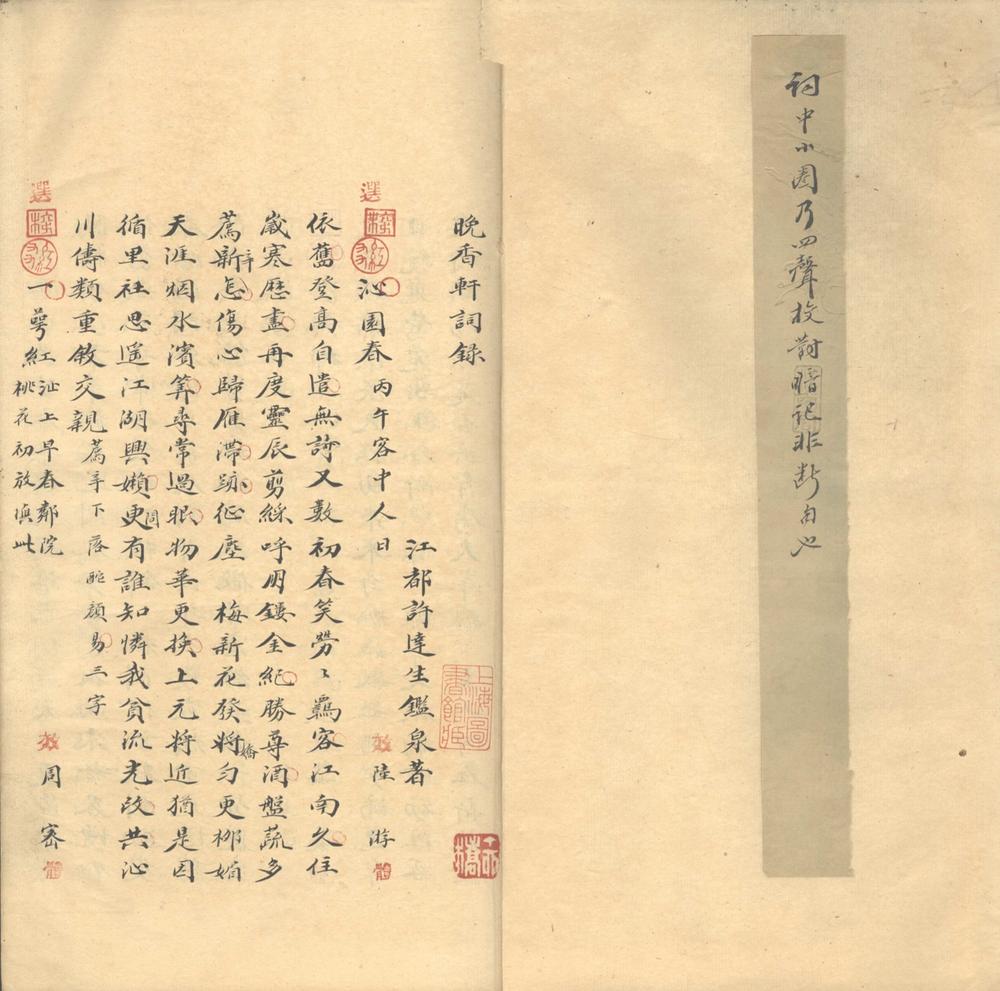 詞中小圈乃四聲校對暗記非斷句也
晚香軒詞錄
江都許達生鑑泉著
選
沁園春 丙午客中人日 效陸游體
依舊登高自遣無詩又數初春笑勞〻羈客江南久住
歲寒歷盡再度靈辰剪綵呼朋鏤金紀勝尊酒盤蔬多
薦新怎傷心歸雁滯跡征塵 梅新花發將勻更柳媚
辛
嬌
天涯烟水濱算尋常過眼物華更換上元將近猶是因
循里社思遥江湖興嬾更有誰知憐我貧流光改共沁
問
川儔類重敘交親
薦辛下落酡顏易三字
選
一萼紅
沚上早春鄰院
桃花初放填此
效周密體
上海圖書館藏